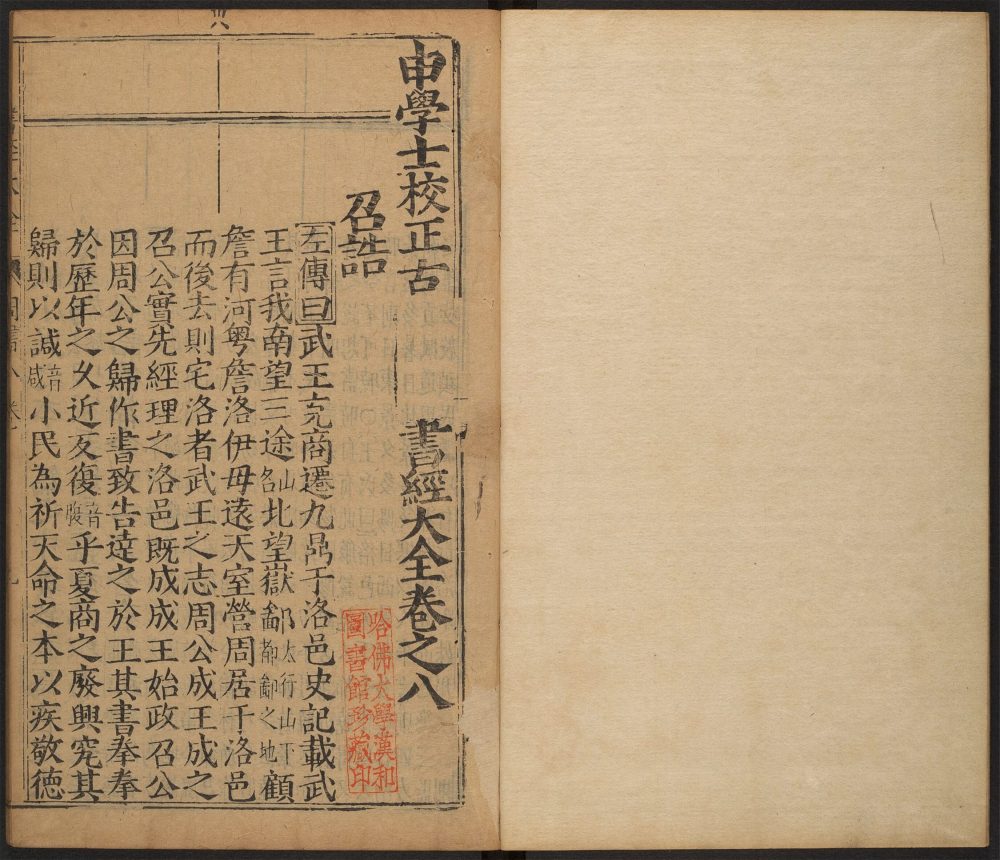 申學士校正古　書經大全卷之八
召誥
左傳曰武王克商遷九鼎于洛邑史記載武
王言我南望三途山名北望嶽鄙太行山下都鄙之地顧
詹有河粤詹洛伊毋遠天室營周居于洛邑
而後去則宅洛者武王之志周公成王成之
召公實先經理之洛邑既成成王始政召公
因周公之歸作書致告達之於王其書拳拳
於歷年之久近反復音腹乎夏商之廢興究其
歸則以諴音咸小民為祈天命之本以疾敬德
哈佛大學漢和
圖書館珍藏印